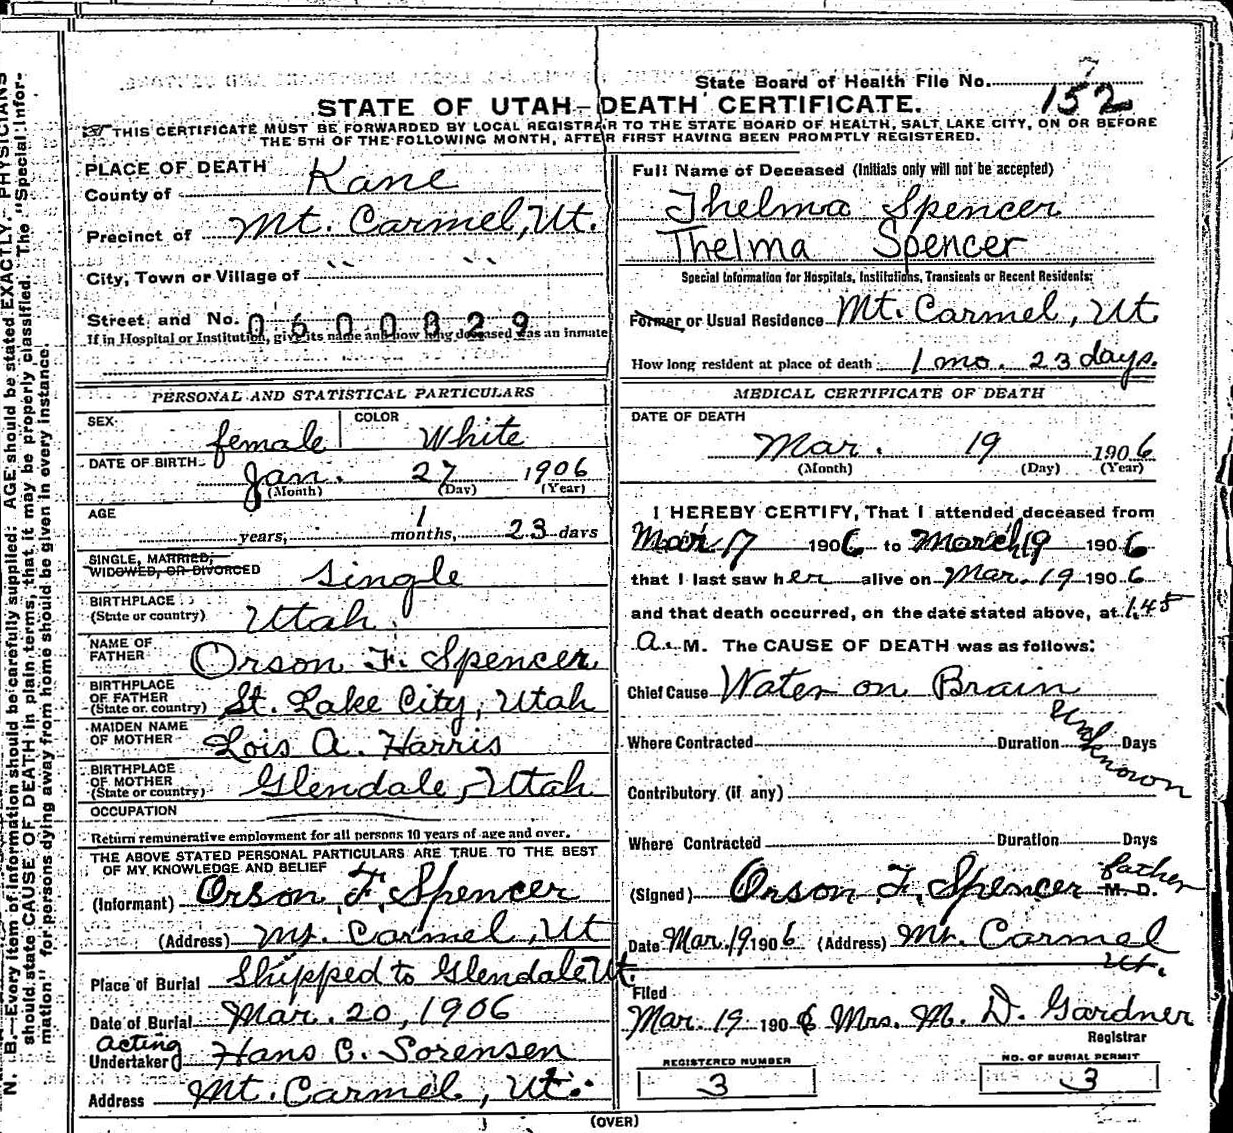 State Board of Health File No. 152
STATE OF UTAH—DEATH CERTIFICATE.
THIS CERTIFICATE MUST BE FORWARDED BY LOCAL REGISTRAR TO THE STATE BOARD OF HEALTH, SALT LAKE CITY, ON OR BEFORE
THE 5TH OF THE FOLLOWING MONTH, AFTER FIRST HAVING BEEN PROMPTLY REGISTERED.
PLACE OF DEATH
County of Kane
Precinct of Mt. Carmel, Ut.
City, Town or Village of " "
Street and No. 0600829
If in Hospital or Institution, give its name and how long deceased was an inmate
PERSONAL AND STATISTICAL PARTICULARS
SEX female COLOR White
DATE OF BIRTH Jan. 27 1906
(Month) (Day) (Year)
AGE years, 1 months, 23 days
SINGLE, MARRIED,
WIDOWED, OR DIVORCED Single
BIRTHPLACE
(State or country) Utah.
NAME OF
FATHER Orson F. Spencer
BIRTHPLACE
OF FATHER
(State or country) St. Lake City, Utah
MAIDEN NAME
OF MOTHER Lois A. Harris
BIRTHPLACE
OF MOTHER
(State or country) Glendale, Utah
OCCUPATION
Return remunerative employment for all persons 10 years of age and over.
THE ABOVE STATED PERSONAL PARTICULARS ARE TRUE TO THE BEST
OF MY KNOWLEDGE AND BELIEF
(Informant) Orson F. Spencer
(Address) Mt. Carmel, Ut
Place of Burial Shipped to Glendale Ut.
Date of Burial Mar. 20, 1906
acting
Undertaker Hans C. Sorensen
Address Mt. Carmel, Ut.
Full Name of Deceased (Initials only will not be accepted)
Thelma Spencer
Thelma Spencer
Special Information for Hospitals, Institutions, Transients or Recent Residents:
Former or Usual Residence Mt. Carmel, Ut.
How long resident at place of death: 1 mo. 23 days.
MEDICAL CERTIFICATE OF DEATH
DATE OF DEATH
Mar. 19 1906
(Month) (Day) (Year)
I HEREBY CERTIFY, That I attended deceased from
Mar 17 1906 to March 19 1906
that I last saw her alive on Mar. 19 1906
and that death occurred, on the date stated above, at 1.45
a. M. The CAUSE OF DEATH was as follows:
Chief Cause Water on Brain
Where Contracted Duration Unknown Days
Contributory (if any)
Where Contracted Duration Days
(Signed) Orson F. Spencer father M. D.
Date Mar. 19 1906 (Address) Mt. Carmel
Ut.
Filed
Mar. 19 1906 Mrs. M. D. Gardner
Registrar
REGISTERED NUMBER
3
NO. OF BURIAL PERMIT
3
(OVER)
N. B.—Every item of information should be carefully supplied: AGE should be stated EXACTLY. PHYSICIANS
should state CAUSE OF DEATH in plain terms, that it may be properly classified. The "Special Infor-
mation" for persons dying away from home should be given in every instance.